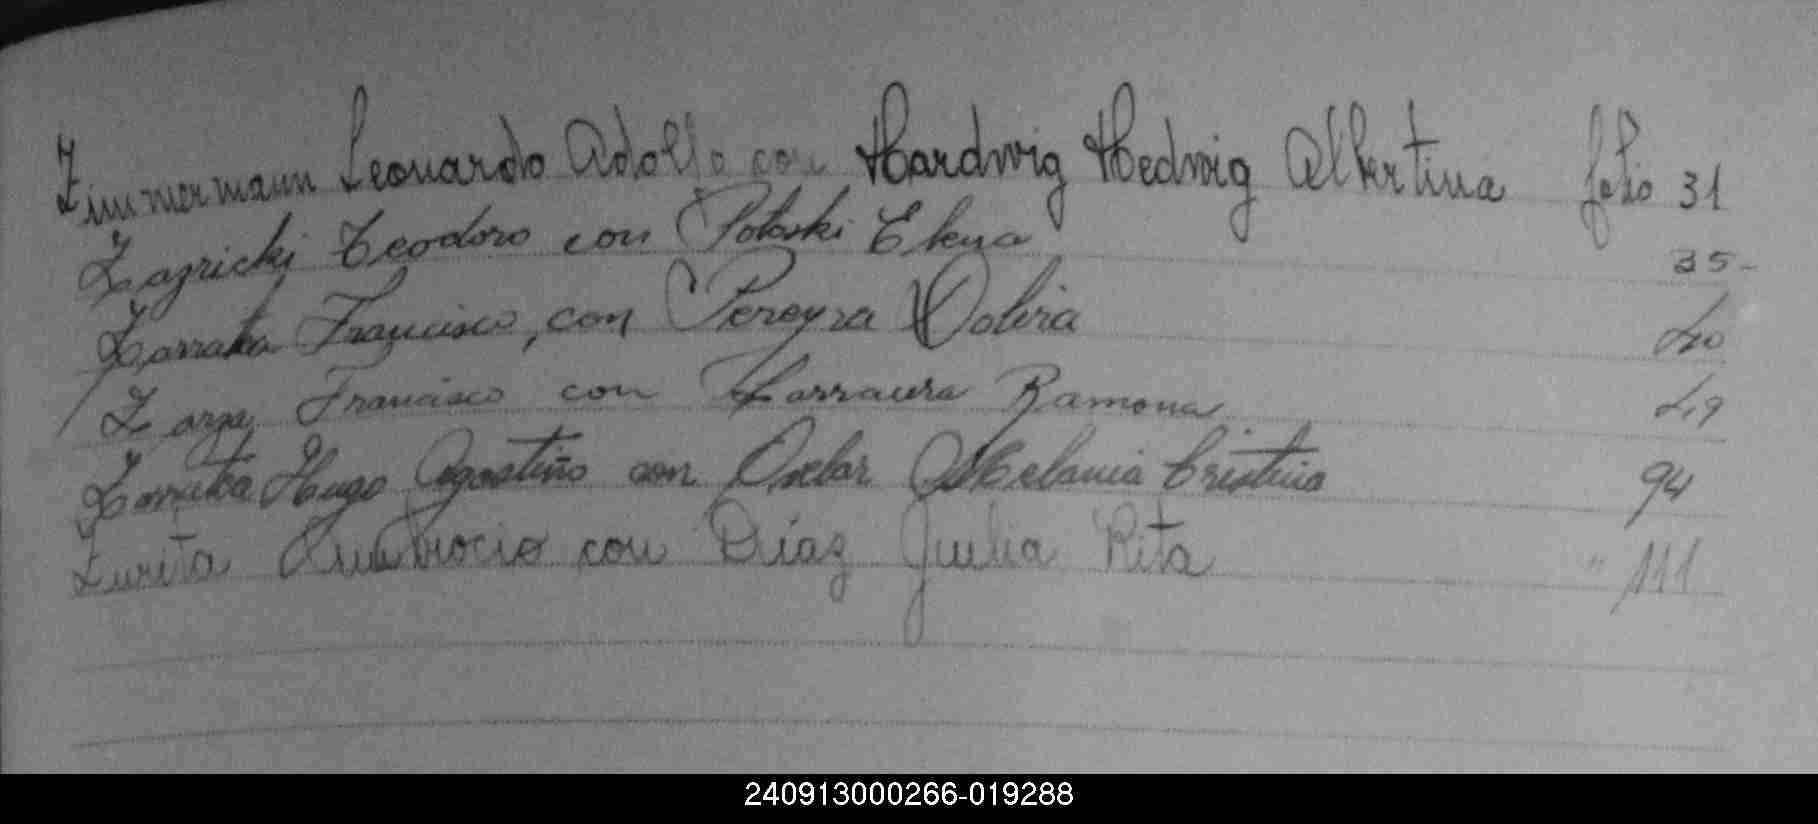 Zimmermann Leonardo Adolfo con Hardwig Hedwig Albertina folio 31
Zazricki Teodoro con Potoski Elena 35-
Francisco, con Pereyra 40
Francisco con Ramona 49
Hugo Agostino con Melania Cristina 94
Zurita Ambrocio con Díaz Julia Rita " 111
240913000266-019288